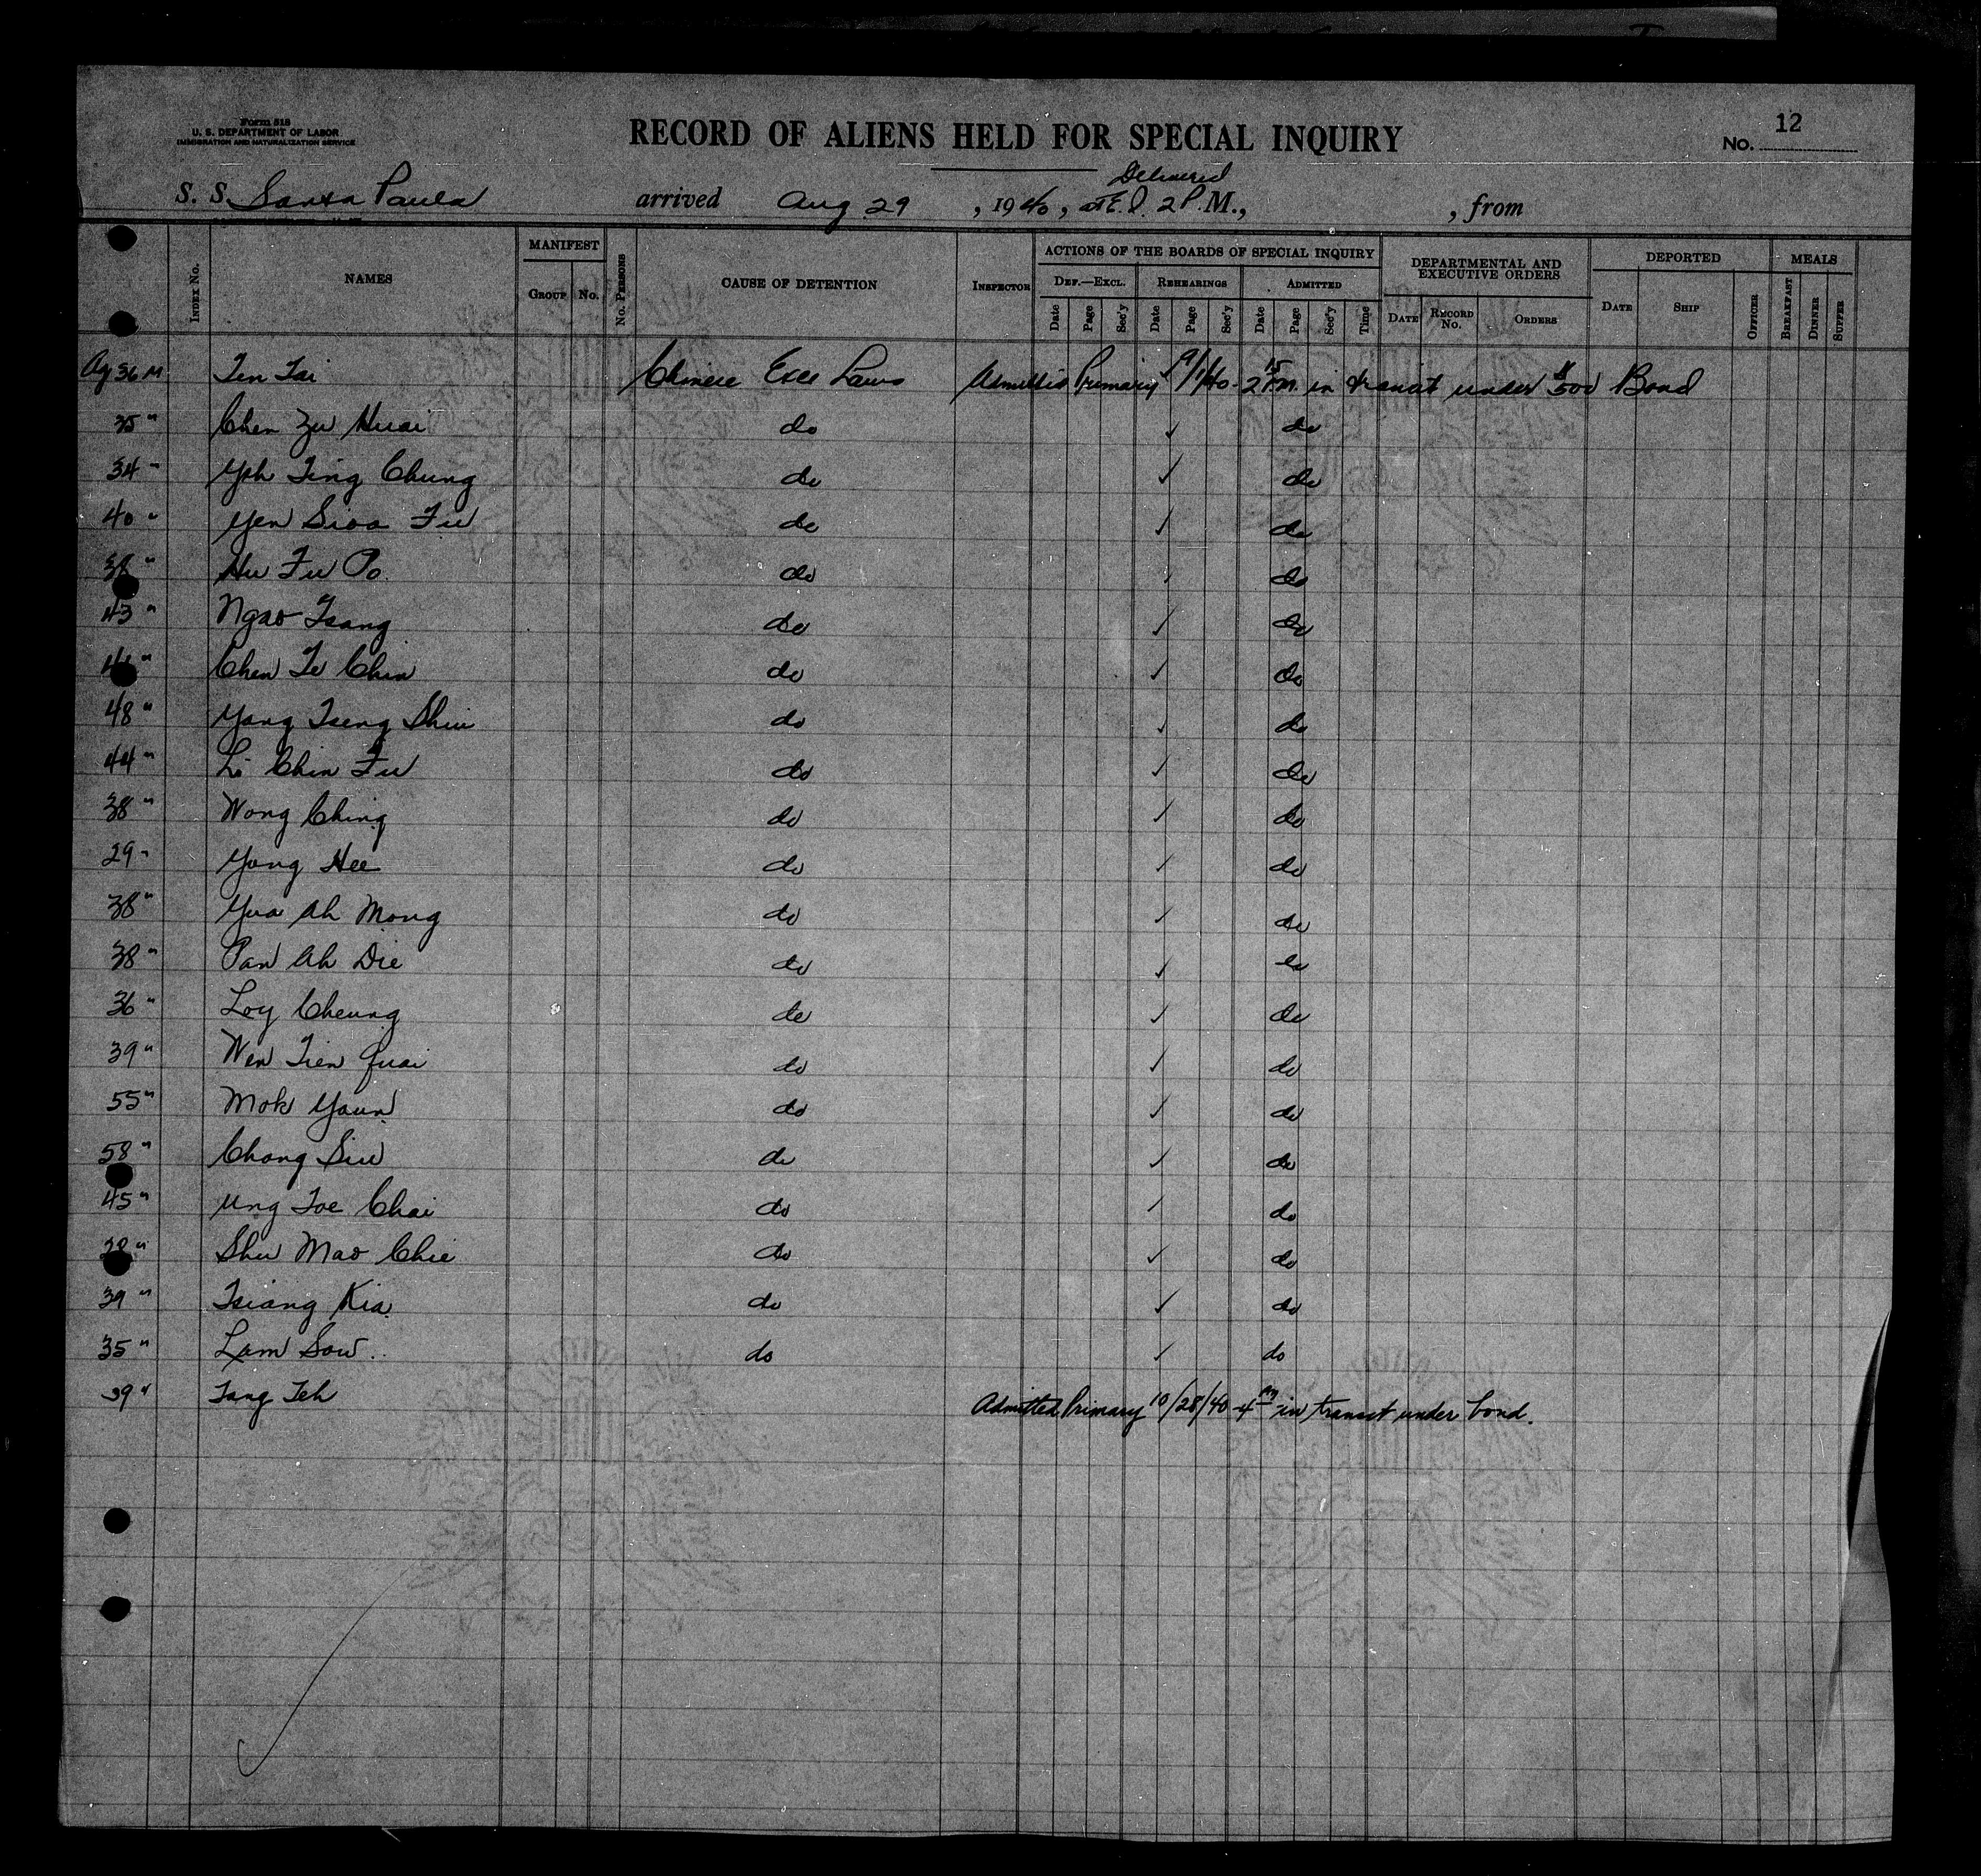 Form 518
U. S. DEPARTMENT OF LABOR
IMMIGRATION AND NATURALIZATION SERVICE
RECORD OF ALIENS HELD FOR SPECIAL INQUIRY
No. 12
Delivered
S. S. Santa Paula arrived Aug 29, 1940, at E. I. 2 P.M., , from
Index No. NAMES MANIFEST Group No. No. Persons CAUSE OF DETENTION Inspector ACTIONS OF THE BOARDS OF SPECIAL INQUIRY Def.—Excl. Date Page Sec'y Rehearings Date Page Sec'y Admitted Date Page Sec'y Time DEPARTMENTAL AND EXECUTIVE ORDERS Date Record No. Orders DEPORTED Date Ship Officer MEALS Breakfast Dinner Supper
Ag 36 M Chinese Excl Laws Admitted Primary 9/1/40 - 2 15 P.M. in transit under $500 Bond
35 " Chen Zu Huai do ✓ do
34 " Yph Ting Chung do ✓ do
40 " Yen Sioa Fu do ✓ do
38 " Hu Fu Po do ✓ do
43 " Ngao Tsang do ✓ do
" Chen Te Chin do ✓ do
48 " Yang Tseng Shiu do ✓ do
44 " Li Chin Fu do ✓ do
38 " Wong Ching do ✓ do
29 " Yong Hee do ✓ do
38 " Yua Ah Mong do ✓ do
38 " Pan Ah Die do ✓ do
36 " Loy Cheung do ✓ do
39 " Wen Tien Quai do ✓ do
55 " Mok Yaun do ✓ do
58 " Chong Siu do ✓ do
45 " Ung Toe Chai do ✓ do
28 " Shu Mao Chie do ✓ do
39 " Tsiang Kia do ✓ do
35 " Lam Sow do ✓ do
39 " Tang Teh Admitted Primary 10/28/40 - 4 PM in transit under bond.